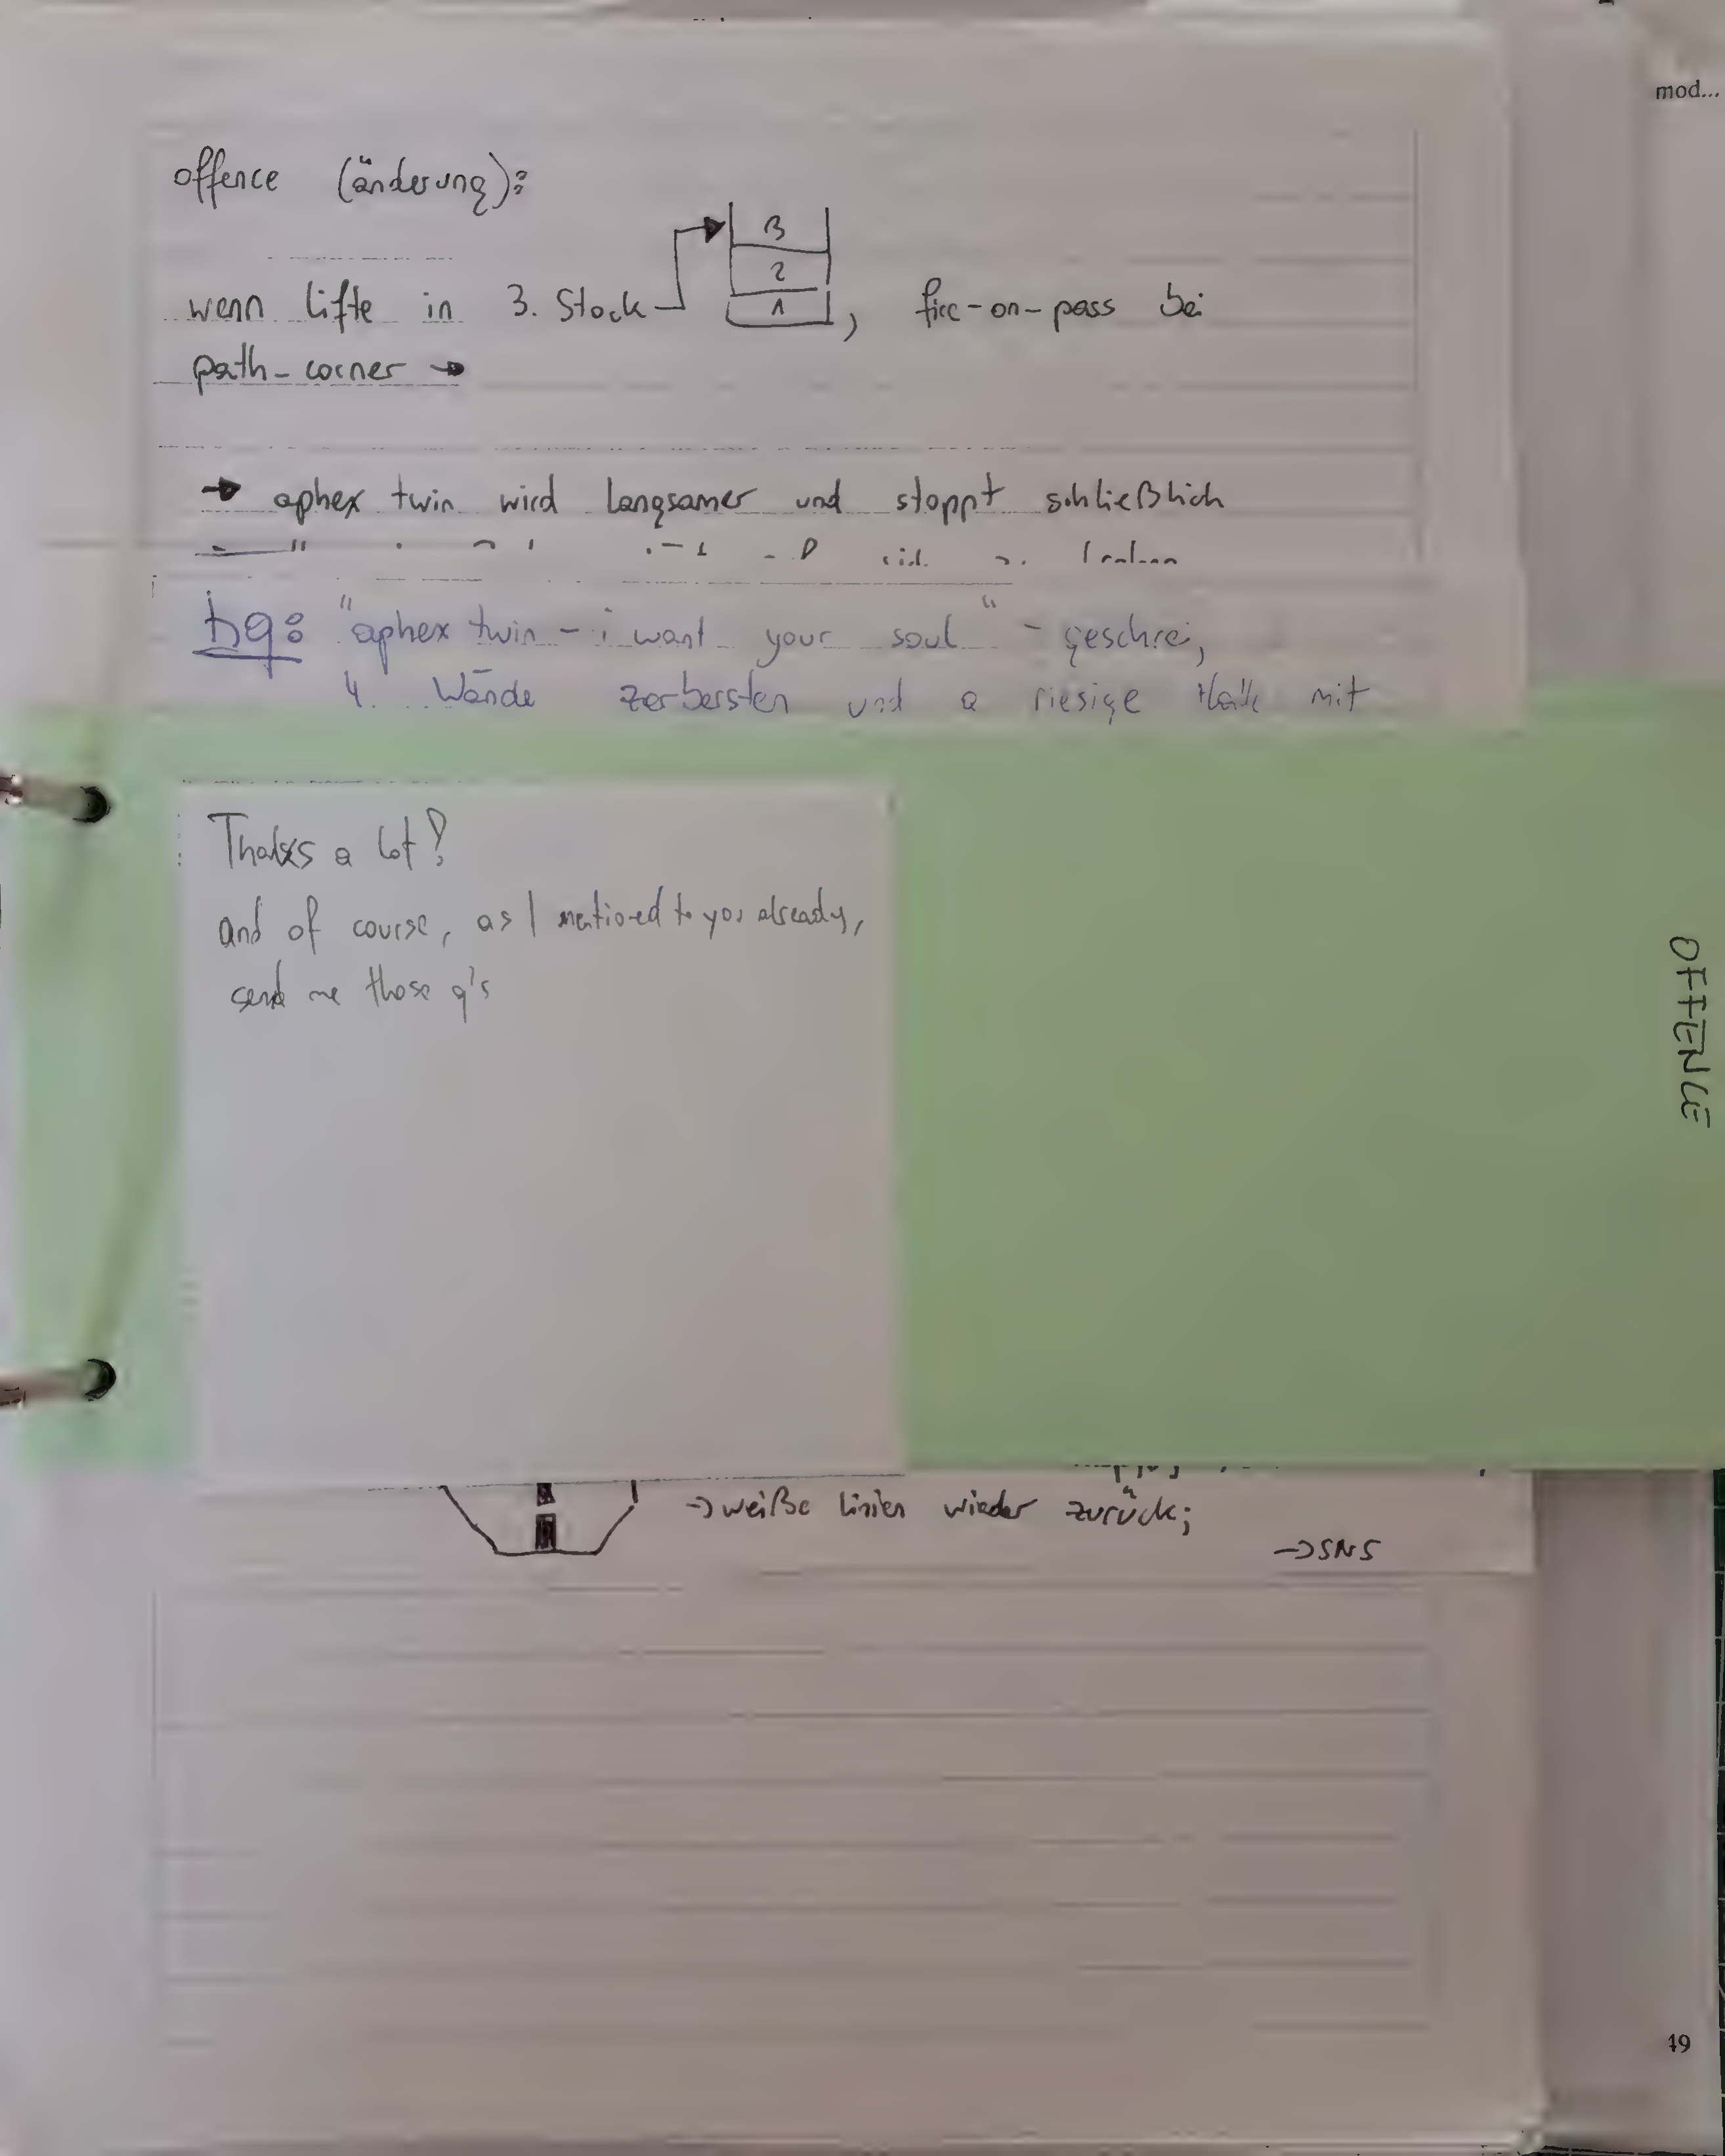 mod...
offence (änderung):
3
2
1
wenn lifte in 3. Stock, fire-on-pass bei
path-corner →
→ aphex twin wird langsamer und stoppt schließlich
hg: "aphex twin - i want your soul" - geschrei,
4 Wände zerbersten und a riesige Halle mit
Thanks a lot!
and of course, as I mentioned to you already,
send me those q's
OFFENCE
→ weiße linien wieder zurück;
→ SNS
49